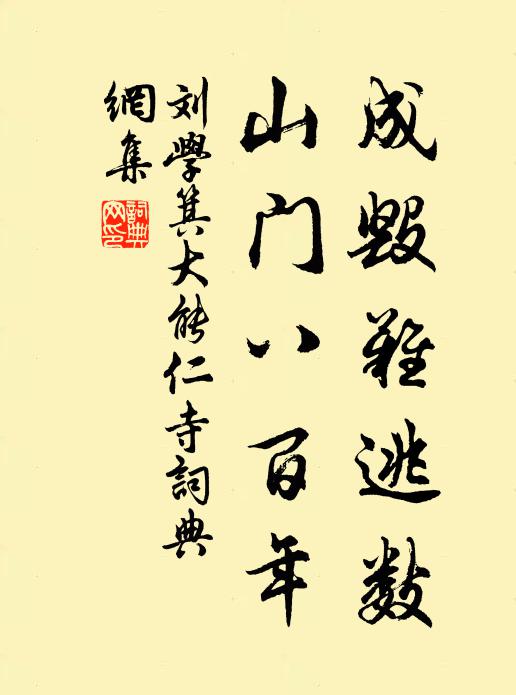 成毁难逃数
山门八百年
刘学箕大能仁寺詞典
網集
詞典
网印